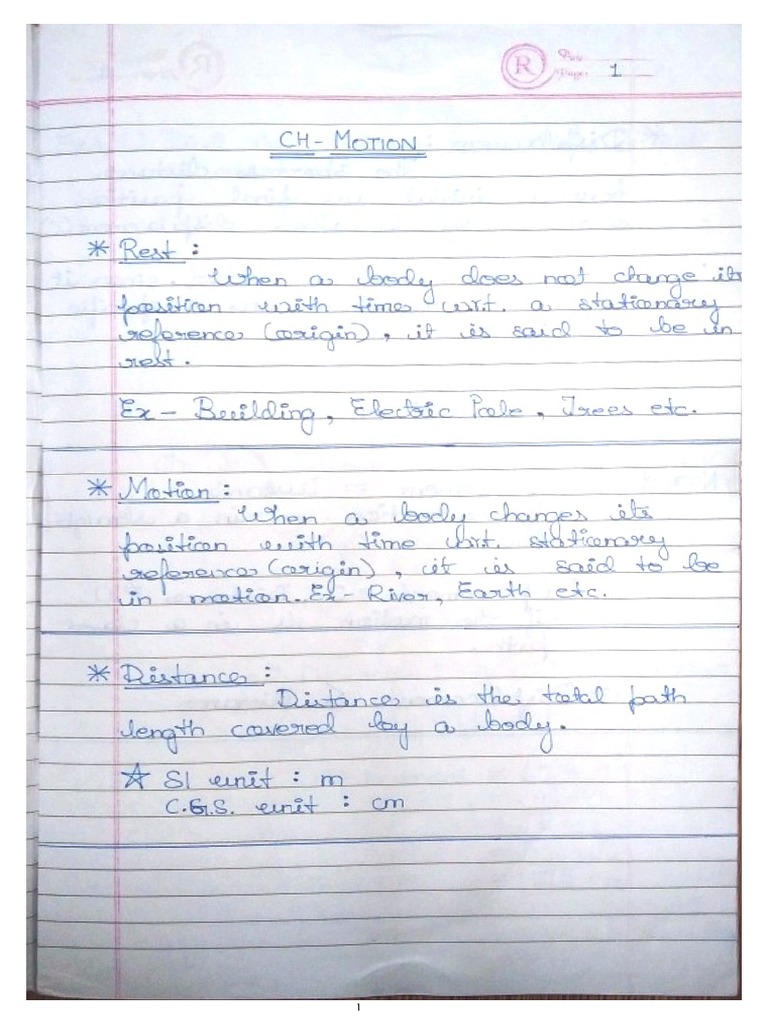 R
Date
Page 1
CH- MOTION
* Rest :
When a body does not change its
position with time w.r.t. a stationary
reference (origin), it is said to be in
rest.
Ex - Building, Electric Pole, Trees etc.
* Motion :
When a body changes its
position with time w.r.t. stationary
reference (origin), it is said to be
in motion. Ex - River, Earth etc.
* Distance :
Distance is the total path
length covered by a body.
☆ SI unit : m
C.G.S. unit : cm
1